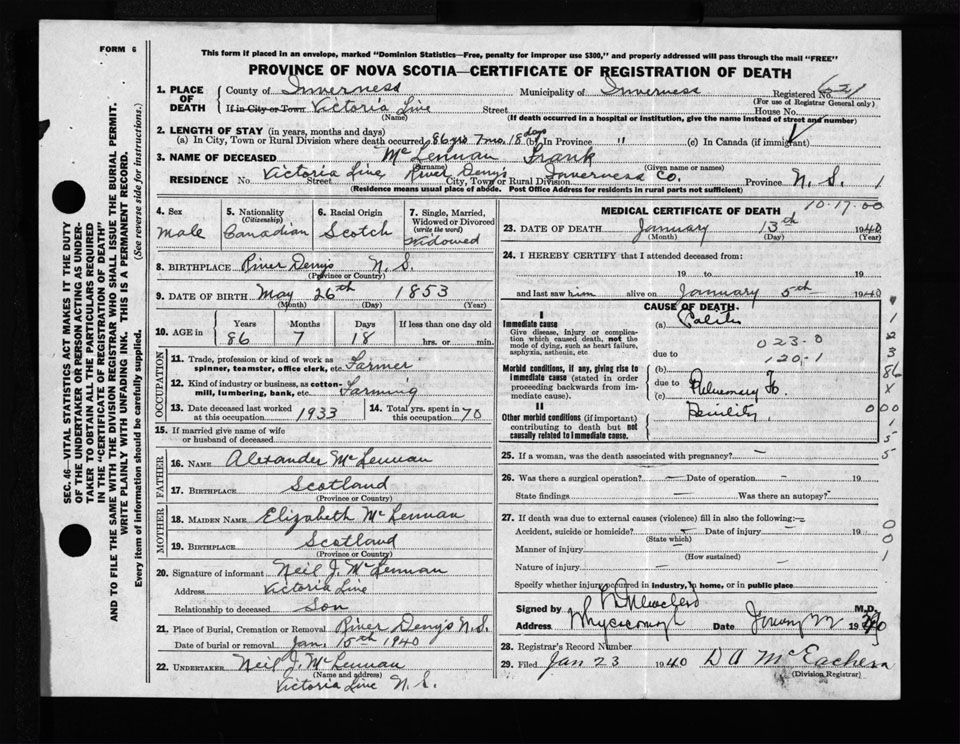 FORM 6
This form if placed in an envelope, marked "Dominion Statistics—Free, penalty for improper use $300," and properly addressed will pass through the mail "FREE"
PROVINCE OF NOVA SCOTIA—CERTIFICATE OF REGISTRATION OF DEATH
SEC. 46—VITAL STATISTICS ACT MAKES IT THE DUTY
OF THE UNDERTAKER OR PERSON ACTING AS UNDER-
TAKER TO OBTAIN ALL THE PARTICULARS REQUIRED
IN THE "CERTIFICATE OF REGISTRATION OF DEATH"
AND TO FILE THE SAME WITH THE DIVISION REGISTRAR WHO SHALL ISSUE THE BURIAL PERMIT.
WRITE PLAINLY WITH UNFADING INK. THIS IS A PERMANENT RECORD.
Every item of information should be carefully supplied. (See reverse side for instructions.)
1. PLACE OF DEATH
County of Inverness Municipality of Inverness Registered No. 621
(For use of Registrar General only)
If in City or Town Victoria Line Street House No.
(Name) (If death occurred in a hospital or institution, give the name instead of street and number)
2. LENGTH OF STAY (in years, months and days)
(a) In City, Town or Rural Division where death occurred 86 yrs 7 mo. 18 days (b) In Province " (c) In Canada (if immigrant)
3. NAME OF DECEASED McLennan Frank
(Surname) (Given name or names)
RESIDENCE No. Victoria Line Street River Denys City, Town or Rural Division Inverness Co. Province N. S. 1
(Residence means usual place of abode. Post Office Address for residents in rural parts not sufficient)
4. Sex
Male
5. Nationality
(Citizenship)
Canadian
6. Racial Origin
Scotch
7. Single, Married,
Widowed or Divorced
(write the word)
Widowed
8. BIRTHPLACE River Denys N. S.
(Province or Country)
9. DATE OF BIRTH May 26th 1853
(Month) (Day) (Year)
10. AGE in
Years Months Days If less than one day old
86 7 18 hrs. or min.
OCCUPATION
11. Trade, profession or kind of work as
spinner, teamster, office clerk, etc. Farmer
12. Kind of industry or business, as cotton-
mill, lumbering, bank, etc. Farming
13. Date deceased last worked
at this occupation 1933
14. Total yrs. spent in
this occupation 70
15. If married give name of wife
or husband of deceased
FATHER
16. NAME Alexander McLennan
17. BIRTHPLACE Scotland
(Province or Country)
MOTHER
18. MAIDEN NAME Elizabeth McLennan
19. BIRTHPLACE Scotland
(Province or Country)
20. Signature of informant Neil J. McLennan
Address Victoria Line
Relationship to deceased Son
21. Place of Burial, Cremation or Removal River Denys N.S.
Date of burial or removal Jan. 15th 1940
22. UNDERTAKER Neil J. McLennan
(Name and address)
Victoria Line N. S.
MEDICAL CERTIFICATE OF DEATH 10-17-00
23. DATE OF DEATH January 13th 1940
(Month) (Day) (Year)
24. I HEREBY CERTIFY that I attended deceased from:
19 to 19
and last saw him alive on January 5th 1940
CAUSE OF DEATH
I
Immediate cause
Give disease, injury or complica-
tion which caused death, not the
mode of dying, such as heart failure,
asphyxia, asthenia, etc
(a)
023-0
due to
120-1
Morbid conditions, if any, giving rise to
immediate cause (stated in order
proceeding backwards from im-
mediate cause).
(b)
due to
(c)
II
Other morbid conditions (important)
contributing to death but not
causally related to immediate cause.
Senility
000
1
2
3
86
X
1
5
5
25. If a woman, was the death associated with pregnancy? —
26. Was there a surgical operation? — Date of operation — 19
State findings — Was there an autopsy? —
27. If death was due to external causes (violence) fill in also the following:—
Accident, suicide or homicide? — Date of injury — 19
(State which)
Manner of injury
(How sustained)
Nature of injury —
Specify whether injury occurred in industry, in home, or in public place
0
0
1
Signed by M.D.
Address Whycocomagh Date January 22 1940
28. Registrar's Record Number
29. Filed Jan 23 1940 D A McEachern
(Division Registrar)